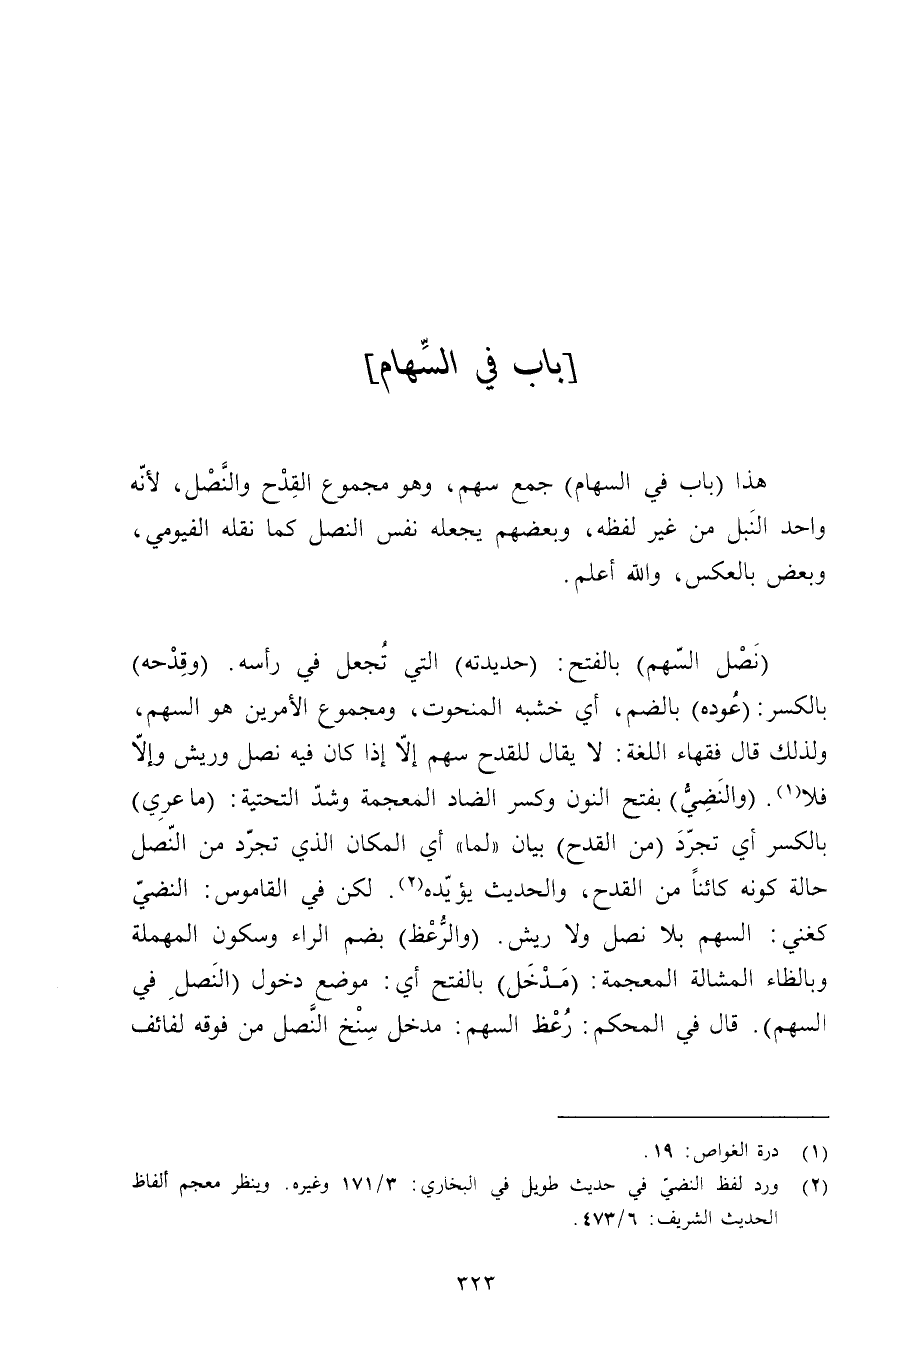 [باب في السِّهام]
هذا (باب في السهام) جمع سهم، وهو مجموع القِدْح والنَّصْل، لأنّه
واحد النَبل من غير لفظه، وبعضهم يجعله نفس النصل كما نقله الفيومي،
وبعض بالعكس، والله أعلم.
(نَصْل السّهم) بالفتح: (حديدته) التي تُجعل في رأسه. (وقِدْحه)
بالكسر: (عُوده) بالضم، أي خشبه المنحوت، ومجموع الأمرين هو السهم،
ولذلك قال فقهاء اللغة: لا يقال للقدح سهم إلّا إذا كان فيه نصل وريش وإلّا
فلا(١). (والنَضِيُّ) بفتح النون وكسر الضاد المعجمة وشدّ التحتية: (ما عرِي)
بالكسر أي تجرّدَ (من القدح) بيان «لما» أي المكان الذي تجرّد من النّصل
حالة كونه كائناً من القدح، والحديث يؤيّده(٢). لكن في القاموس: النضيّ
كغني: السهم بلا نصل ولا ريش. (والرُّعْظ) بضم الراء وسكون المهملة
وبالظاء المشالة المعجمة: (مَـدْخَل) بالفتح أي: موضع دخول (النَصلِ في
السهم). قال في المحكم: رُعْظ السهم: مدخل سِنْخ النَّصل من فوقه لفائف
(١) درة الغواص: ١٩.
(٢) ورد لفظ النضيّ في حديث طويل في البخاري: ١٧١/٣ وغيره. وينظر معجم ألفاظ
الحديث الشريف: ٤٧٣/٦.
٣٢٣